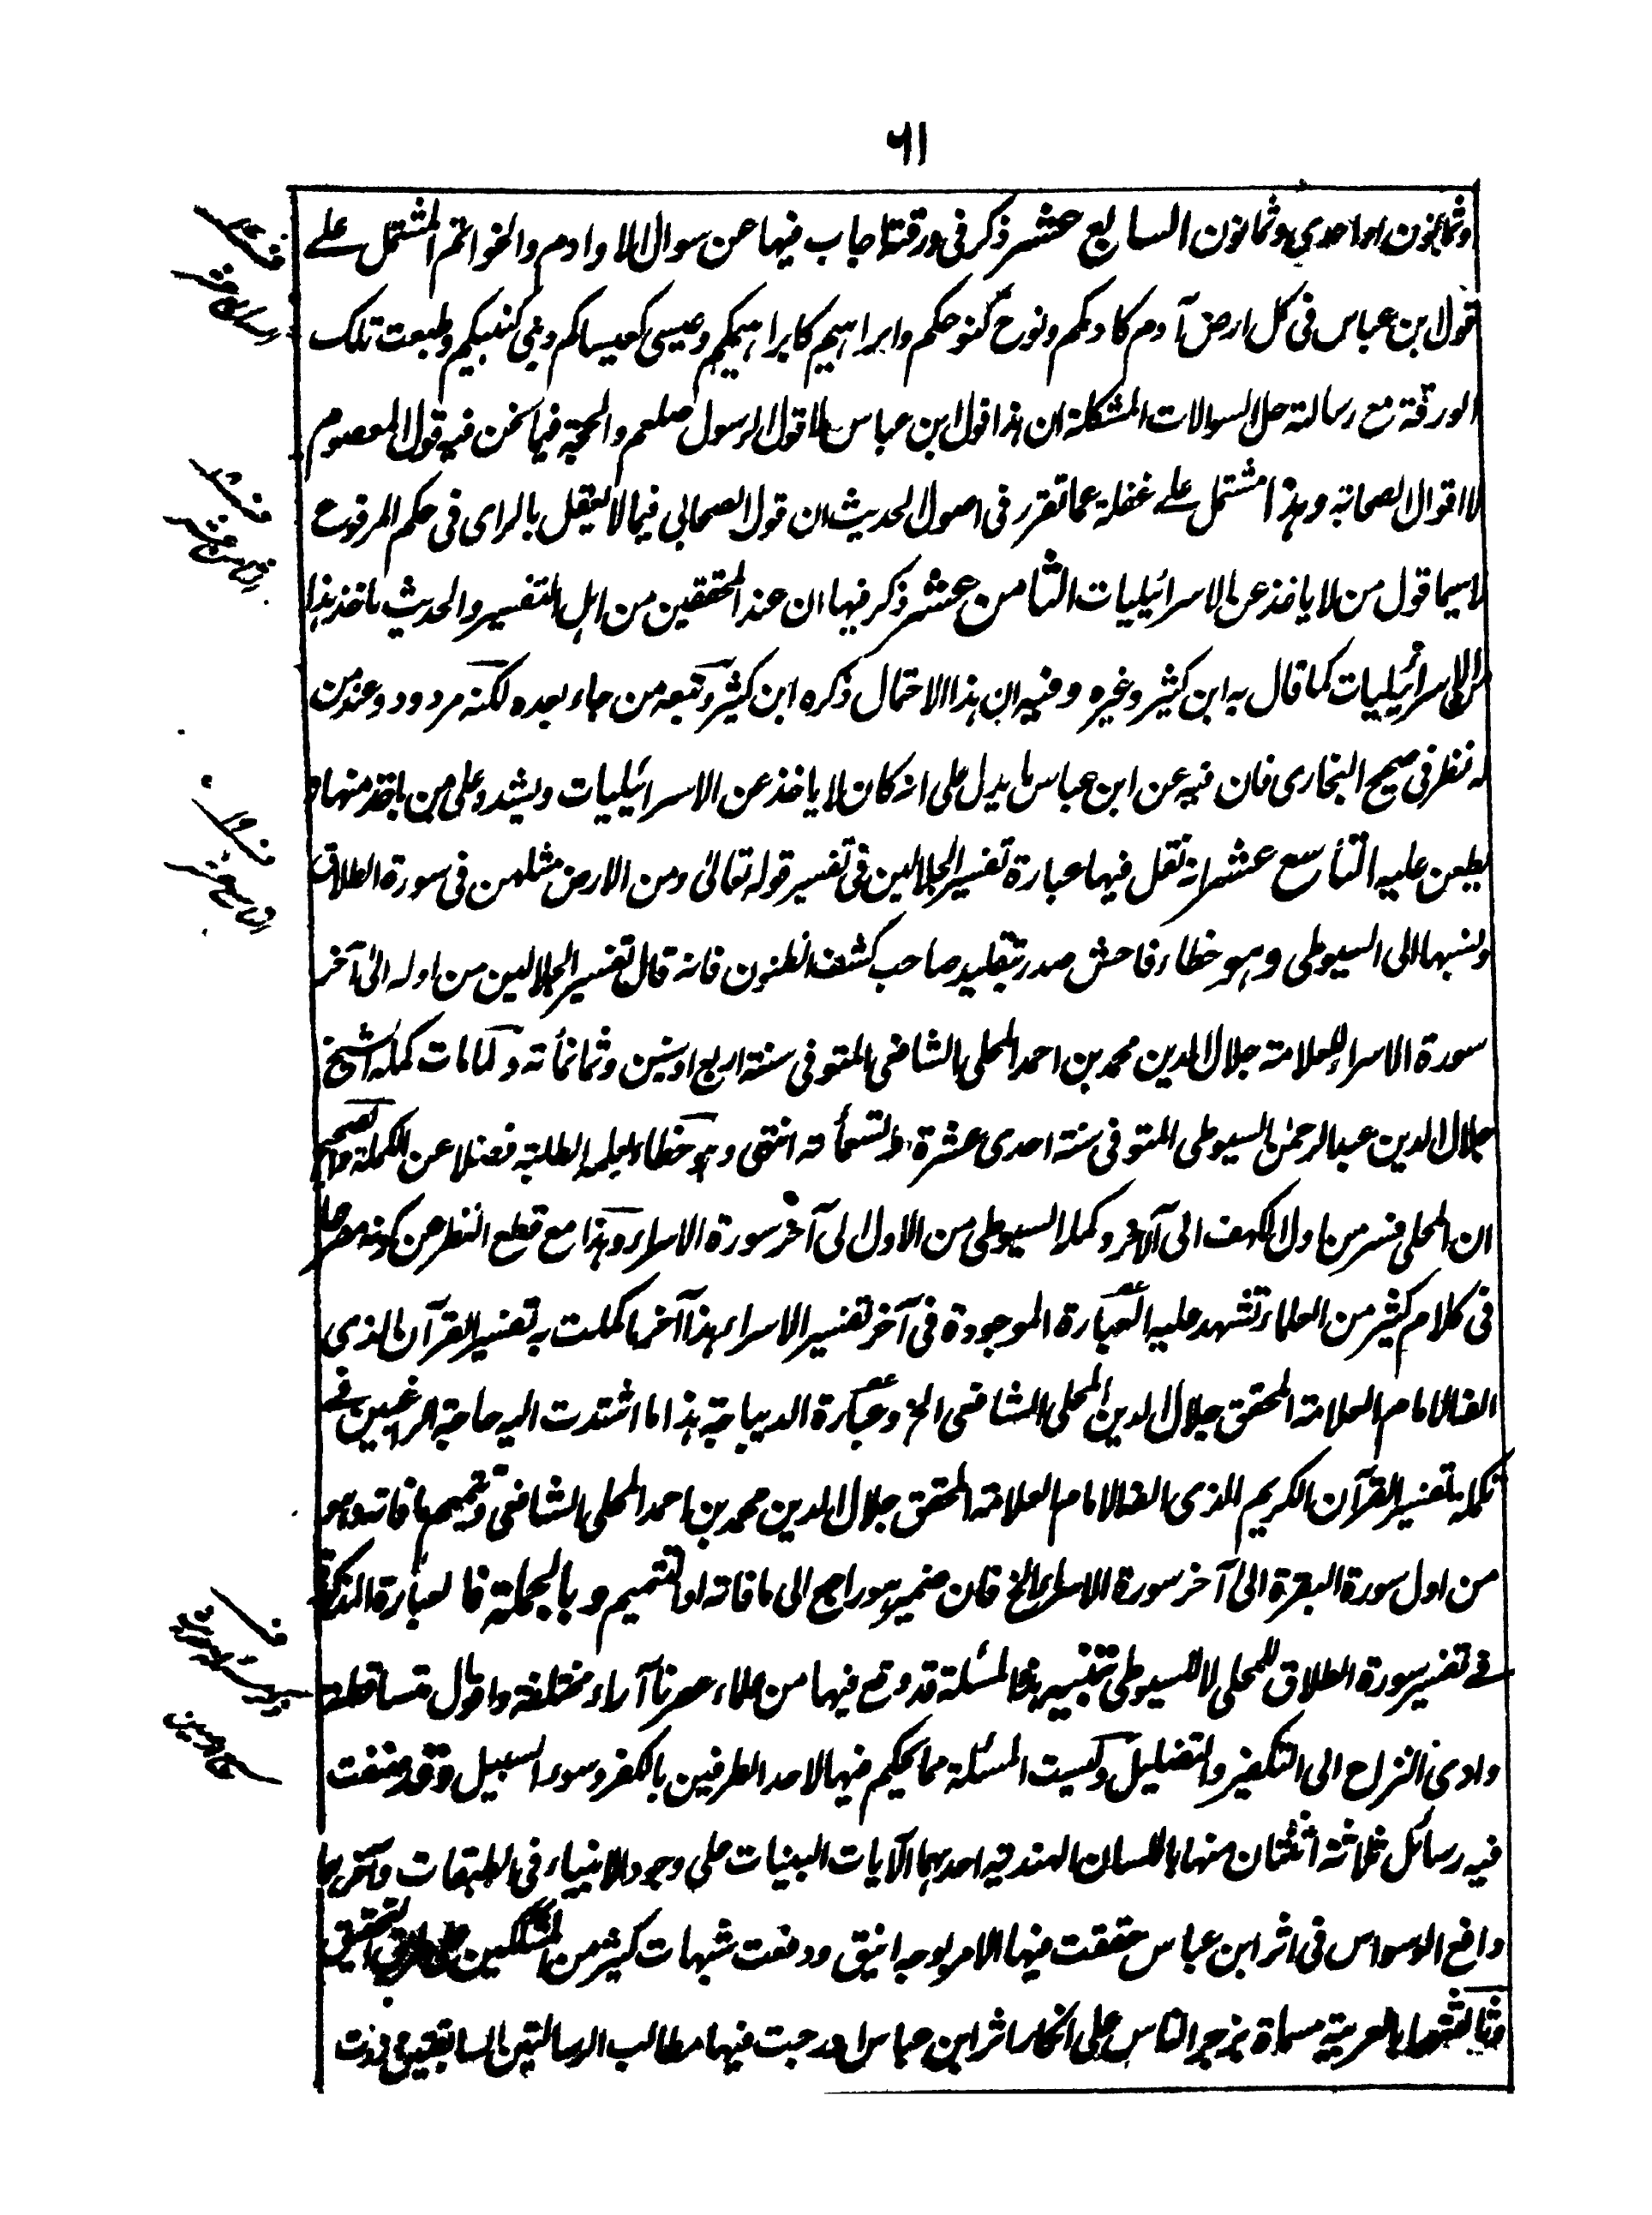 ٦١
وثمانون او احدى وثمانون السابع عشر ذكر فى ورقتنا جاب فيها عن سوال الاوادم والخواتم المشتمل علے
قول ابن عباس فى كل ارض آدم كادمكم ونوح كنوحكم وابراهيم كابراهيمكم وعيسى كعيساكم ونبى كنبيكم وطبعت تلك
الورقة مع رسالته حل السوالات المشكلة ان هذا قول ابن عباس لا قول الرسول صلعم والحجة فيما نحن فيه قول المعصوم
لا اقوال الصحابة وهذا مشتمل علے غفلة عما تقرر فى اصول الحديث ان قول الصحابى فيما لا يعقل بالراى فى حكم المرفوع
لا سيما قول من لا ياخذ عن الاسرائيليات الثامن عشر ذكر فيها ان عند المحققين من اهل التفسير والحديث ماخذ هذا
من الاسرائيليات كما قال به ابن كثير وغيره وفيه ان هذا الاحتمال ذكره ابن كثير وتبعه من جاء بعده لكنه مردود عند من
له نظر فى صحيح البخارى فان فيه عن ابن عباس ما يدل على انه كان لا ياخذ عن الاسرائيليات ويشدد على من ياخذ منها و
يطعن عليه التاسع عشر انه نقل فيها عبارة تفسير الجلالين فى تفسير قوله تعالى ومن الارض مثلهن فى سورة الطلاق
ونسبها الى السيوطى وهو خطاء فاحش صدر بتقليد صاحب كشف الظنون فانه قال تفسير الجلالين من اوله الى آخر
سورة الاسراء للعلامة جلال الدين محمد بن احمد المحلى الشافعى المتوفى سنة اربع وستين وثمانمأته ولما مات كمله الشيخ
جلال الدين عبد الرحمن السيوطى المتوفى سنة احدى عشرة وتسعمأته انتهى وهو خطاء يعلمه الطلبة فضلا عن الكملة والصحيح
ان المحلى فسر من اول الكهف الى الآخر وكمله السيوطى من الاول الى آخر سورة الاسراء وهذا مع قطع النظر عن كونه مصرحا
فى كلام كثير من العلماء تشهد عليه العبارة الموجودة فى آخر تفسير الاسراء هذا آخر ما كملت به تفسير القرآن الذى
الفه الامام العلامة المحقق جلال الدين المحلى الشافعى الخ وعبارة الديباجة هذا ما اشتدت اليه حاجة الراغبين فے
تكملة تفسير القرآن الكريم الذى الفه الامام العلامة المحقق جلال الدين محمد بن احمد المحلى الشافعى وتتميم ما فاته وهو
من اول سورة البقرة الى آخر سورة الاسراء الخ فان ضمير هو راجع الى ما فاته او التتميم وبالجملة فالعبارة المذكورة
فے تفسير سورة الطلاق للمحلى لا للسيوطى تنبيه هذه المسئلة قد وقع فيها من علماء عصرنا آراء مختلفة واقوال متساقطة
وادى النزاع الى التكفير والتضليل وليست المسئلة مما يحكم فيها لاحد الطرفين بالكفر وسوء السبيل وقد صنفت
فيه رسائل ثلاثة اثنتان منها باللسان الهندية احدهما الآيات البينات على وجود الانبياء فى الطبقات وآخرها
دافع الوسواس فى اثر ابن عباس حققت فيها الامر بوجه انيق ودفعت شبهات كثير من المشككين التحقيق
وثالثتها بالعربية مسماة بزجر الناس على انكار اثر ابن عباس ادرجت فيها مطالب الرسالتين السابقتين